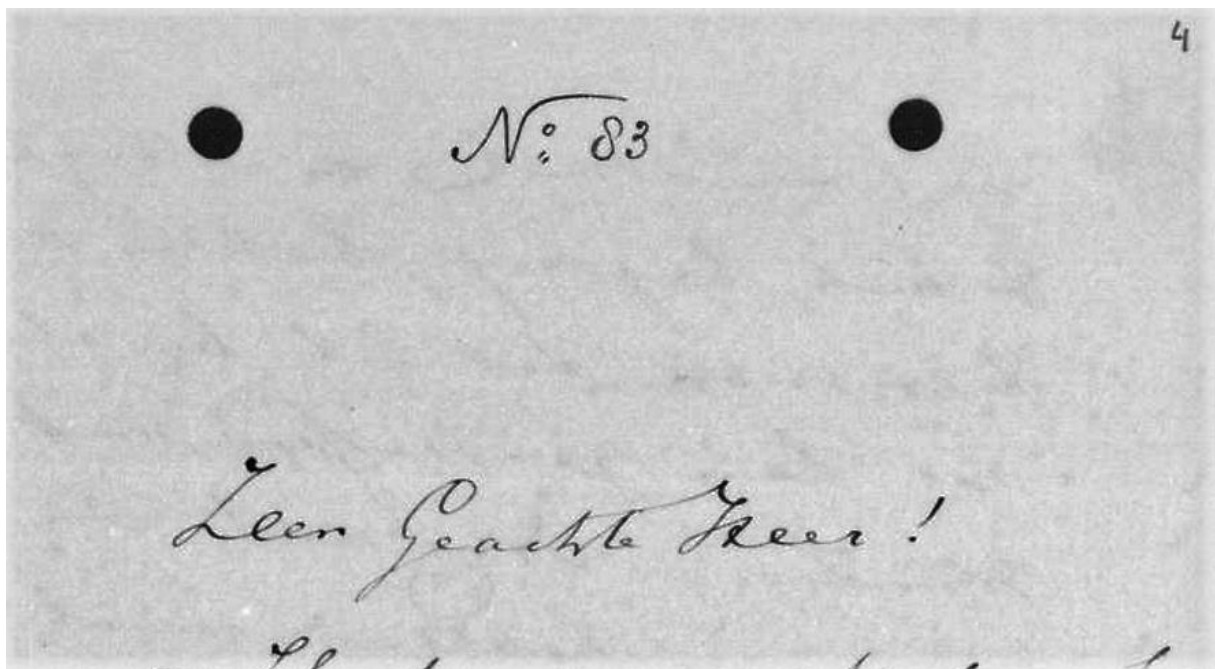 4
Nº 83
Zeer Geachte Heer!